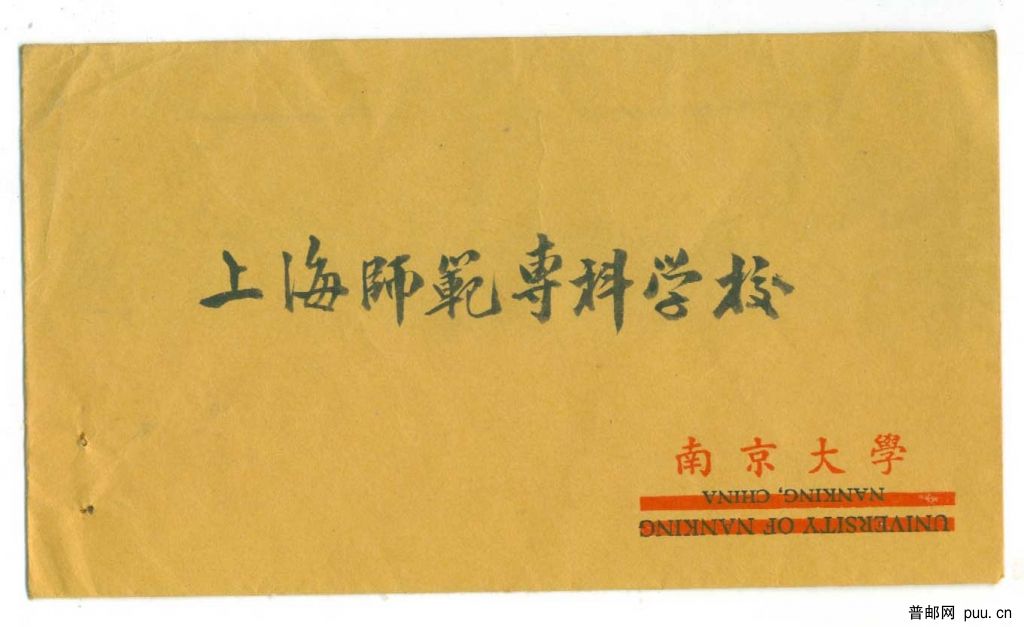 上海師範専科学校
南京大學
NANKING, CHINA
UNIVERSITY OF NANKING
普邮网 puu.cn